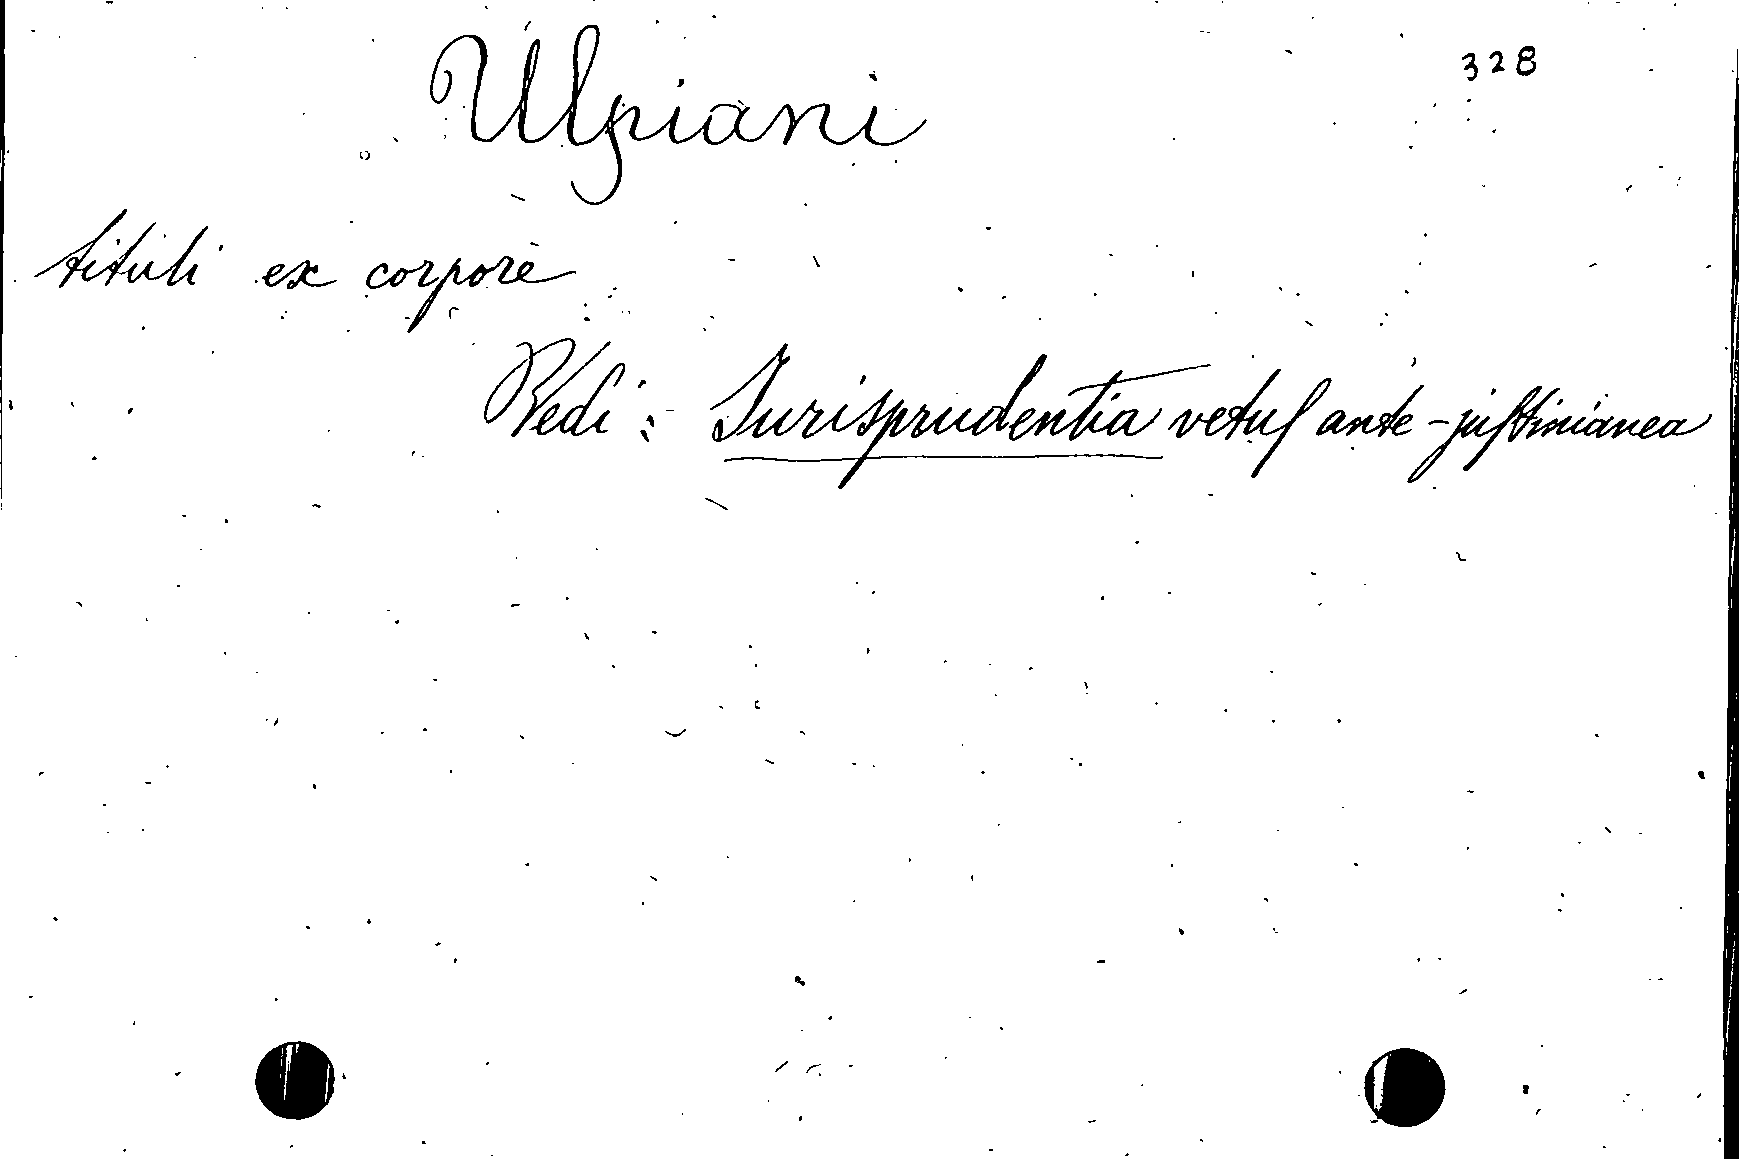 328
Ulpiani
tituli ex corpore
Vedi: Jurisprudentia vetus ante-justinianea